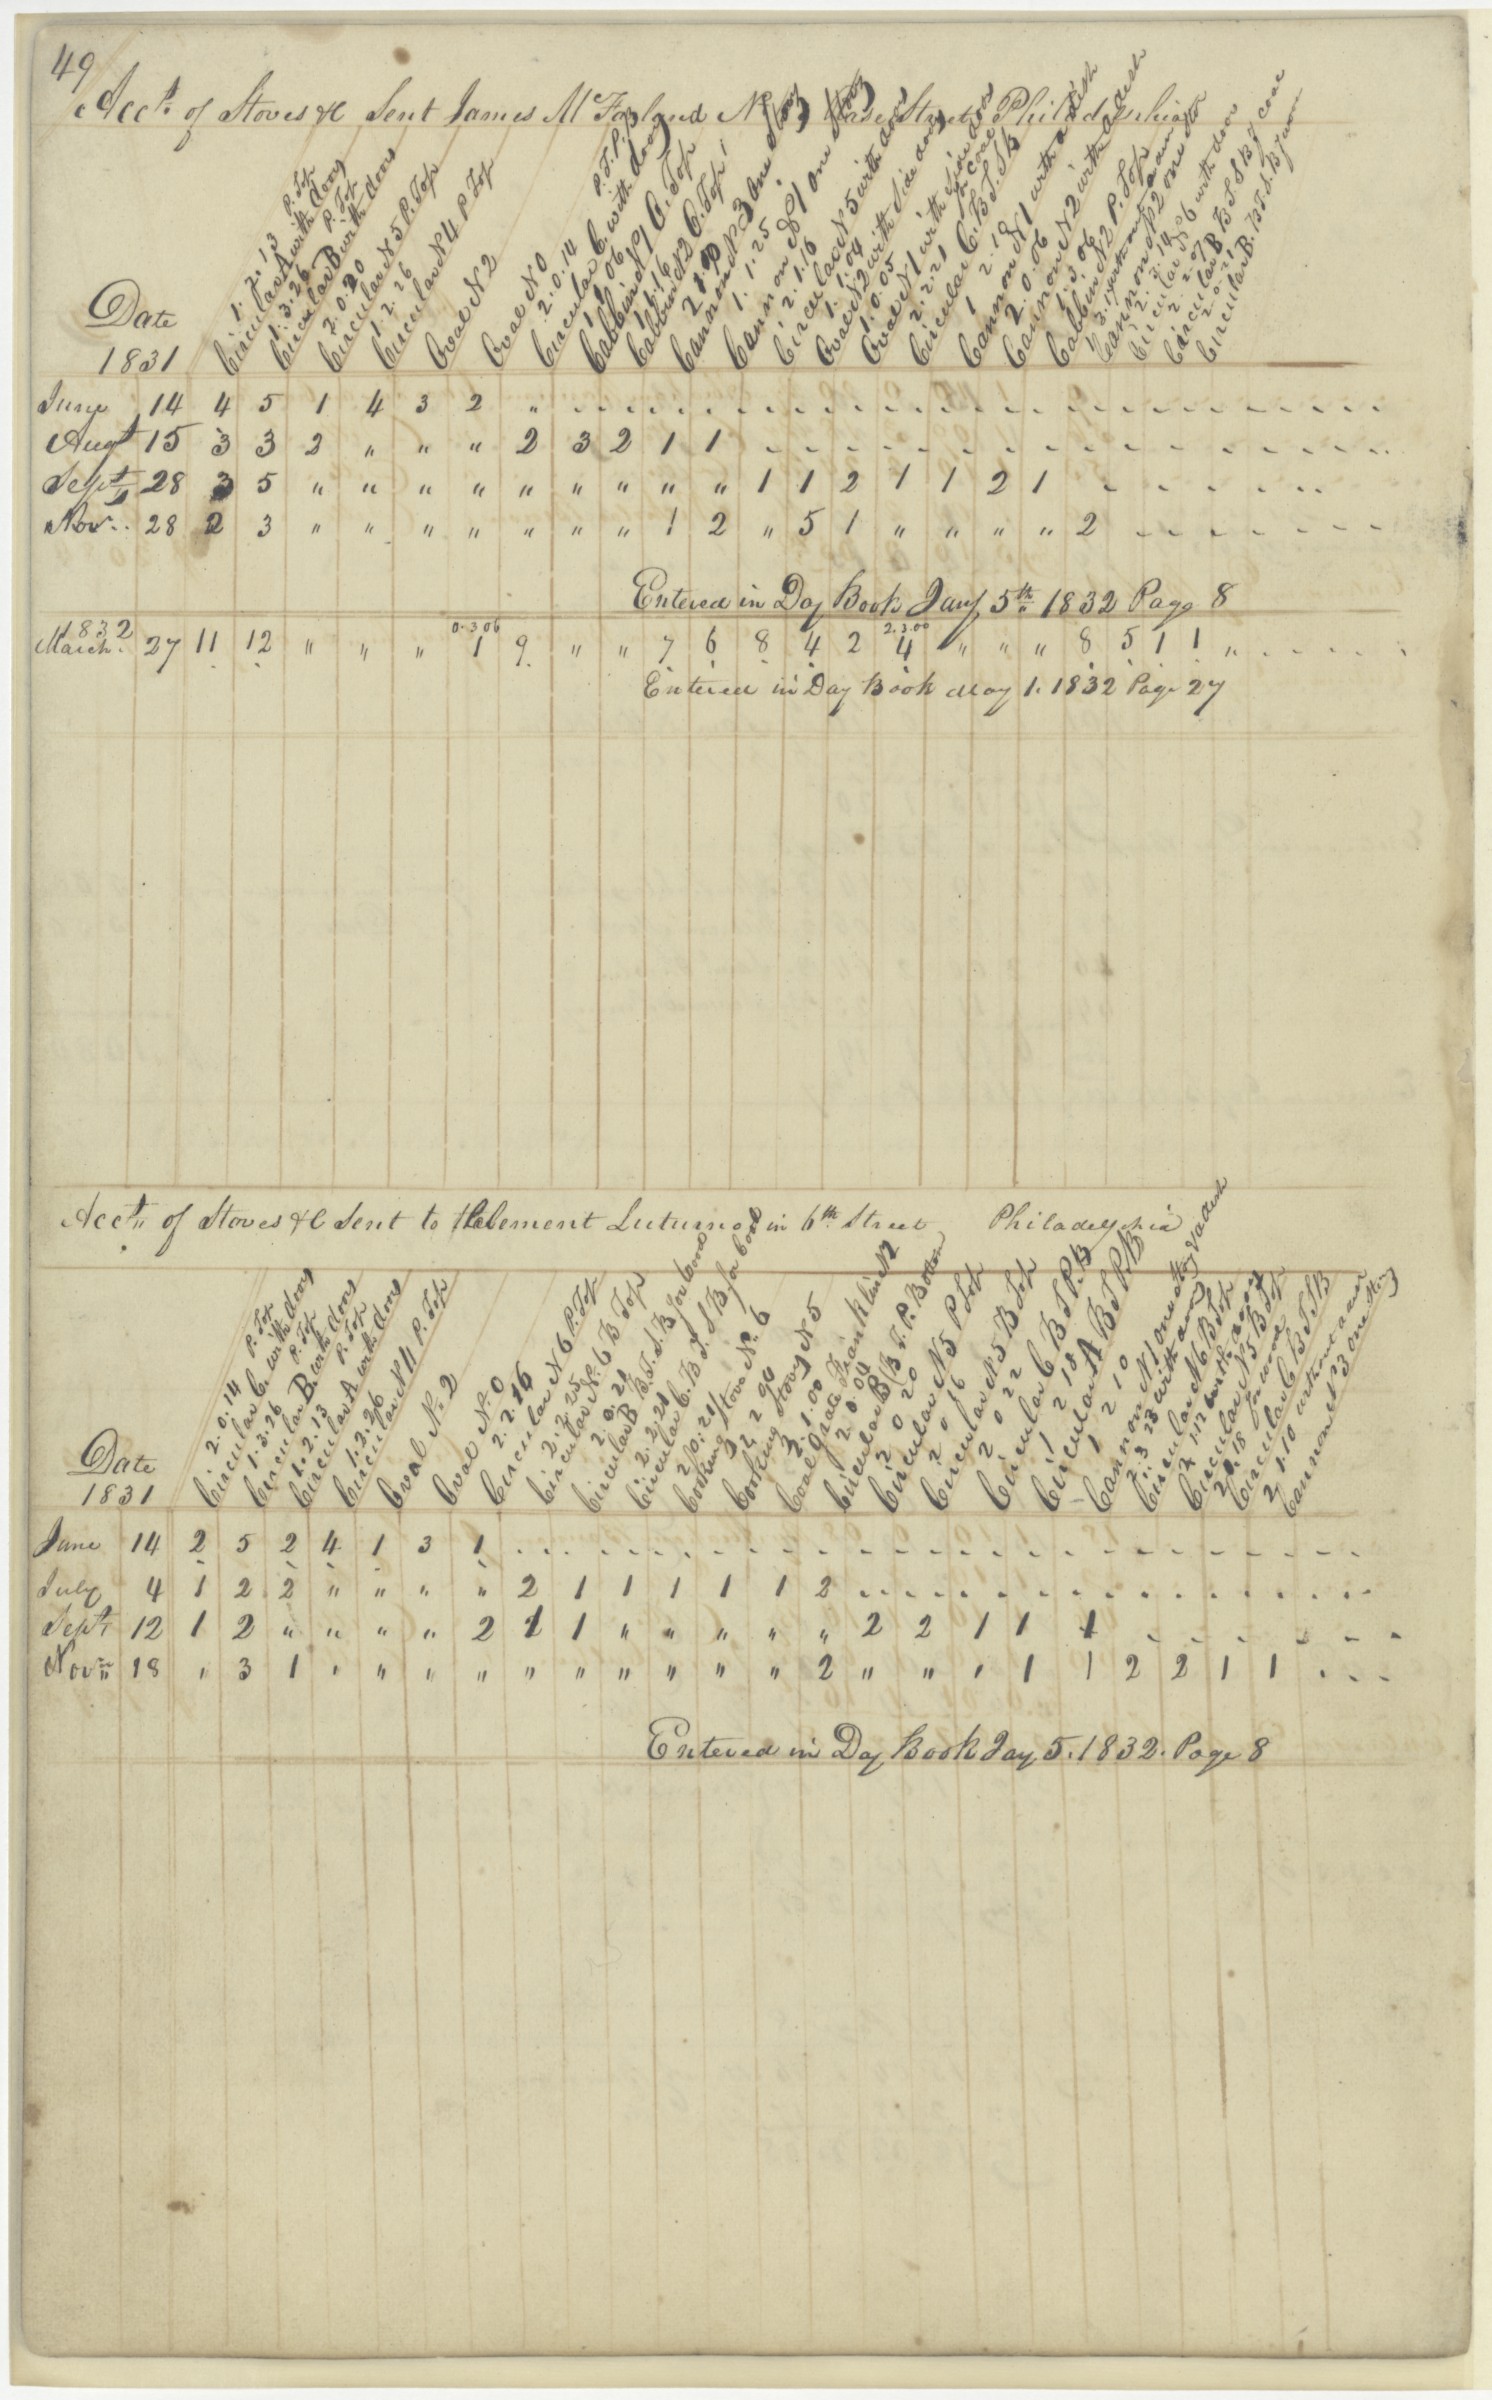 49
Acct. of Stoves &c Sent James McFarland No Street Philadelphia
Date
1831
1. 2. 13 P. Top
Circular A with doors
1. 3. 26 P. Top
Circular B with doors
2. 0. 20
Circular N 5 P. Top
1. 2. 26
Circular N 4 P Top
Oval N 2
Oval N 0
2. 0. 14 P. T. P. B
Circular C. with doors
1 06
Cabbin N 1 C. Top
1. 16
Cabbin N 2 C. Top
Cannon N 3 One Story
1. 1. 25
Cannon No 1 One Story
2. 1. 16
Circular N 5 with doors
1. 1. 04
Oval N 2 with Side doors
1. 0. 05
Oval N 1 with Side doors
2. 2. 21 for coal
Circular C. B T. S. B
1 2. 19
Cannon N 1 with a dish
2. 0. 06
Cannon N 2 with a dish
1. 3 06
Cabbin N 2 P. Top
Cannon N 2 one
2. 2. 14
Circular No 6 with doors
2. 2. 07
Circular B B T. S B for coal
2. 0. 21
Circular B. B T. S. B
June 14 4 5 1 4 3 2 "
Augt 15 3 3 2 " " " 2 3 2 1 1
Sept 28 3 5 " " " " " " " " " 1 1 2 1 1 2 1
Novr. 28 2 3 " " " " " " " 1 2 " 5 1 " " " " 2
Entered in Day Book Jany 5th 1832 Page 8
1832
0. 3 06 2. 3. 00
March. 27 11 12 " " " 1 9 " " 7 6 8 4 2 4 " " " 8 5 1 1 "
Entered in Day Book May 1. 1832 Page 27
Acct. of Stoves &c Sent to Clement Luturno in 6th Street Philadelphia
Date
1831
2. 0. 14 P. Top
Circular C. with doors
1. 3. 26 P. Top
Circular B. with doors
1. 2. 13 P. Top
Circular A with doors
1. 2. 26
Circular N 4 P. Top
Oval No. 2
Oval No. 0
2. 2. 16
Circular N 6 P. Top
2. 2. 25
Circular No. 6 B Top
2. 0. 21
Circular B B. T. S. B for coal
2. 2. 21
Circular C. B T. S B for coal
Cooking Stove No. 6
2 2 90
Cooking Stove N 5
3. 1. 00
Coal grate Franklin N 2
2 0. 04
Circular B B T. P. Bottom
2 0 20
Circular N 5 P Top
2 0 16
Circular N 5 B Top
2 0 22
Circular C B T. P. B
1 2 18
Circular A B T P. B
1 2 10
Cannon N 1 one Story & a dish
2. 3 23 with doors
Circular N 6 B Top
2. 1. 12 with doors
Circular N 5 B Top
2 0. 18 for wood
Circular C B T S B
2 1. 10 without a urn
Cannon N 3 One Story
June 14 2 5 2 4 1 3 1
July 4 1 2 2 " " " " 2 1 1 1 1 1 2
Sept 12 1 2 " " " " 2 1 1 " " " " " 2 2 1 1 1
Novr 18 " 3 1 " " " " " " " " " " 2 " " " 1 1 2 2 1 1
Entered in Day Book Jany 5. 1832. Page 8